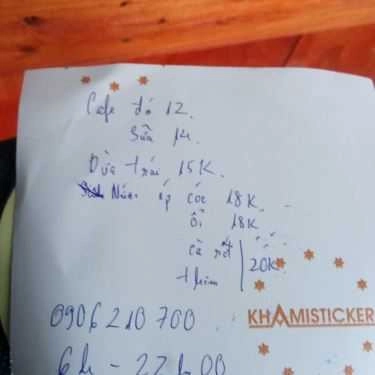 Cafe đá 12.
Sữa 14.
Dừa trái 15K.
Nước ép cóc 18K.
ổi 18K
cà rốt 20K
thơm
0906210700
KHAMISTICKER
6h - 22h00